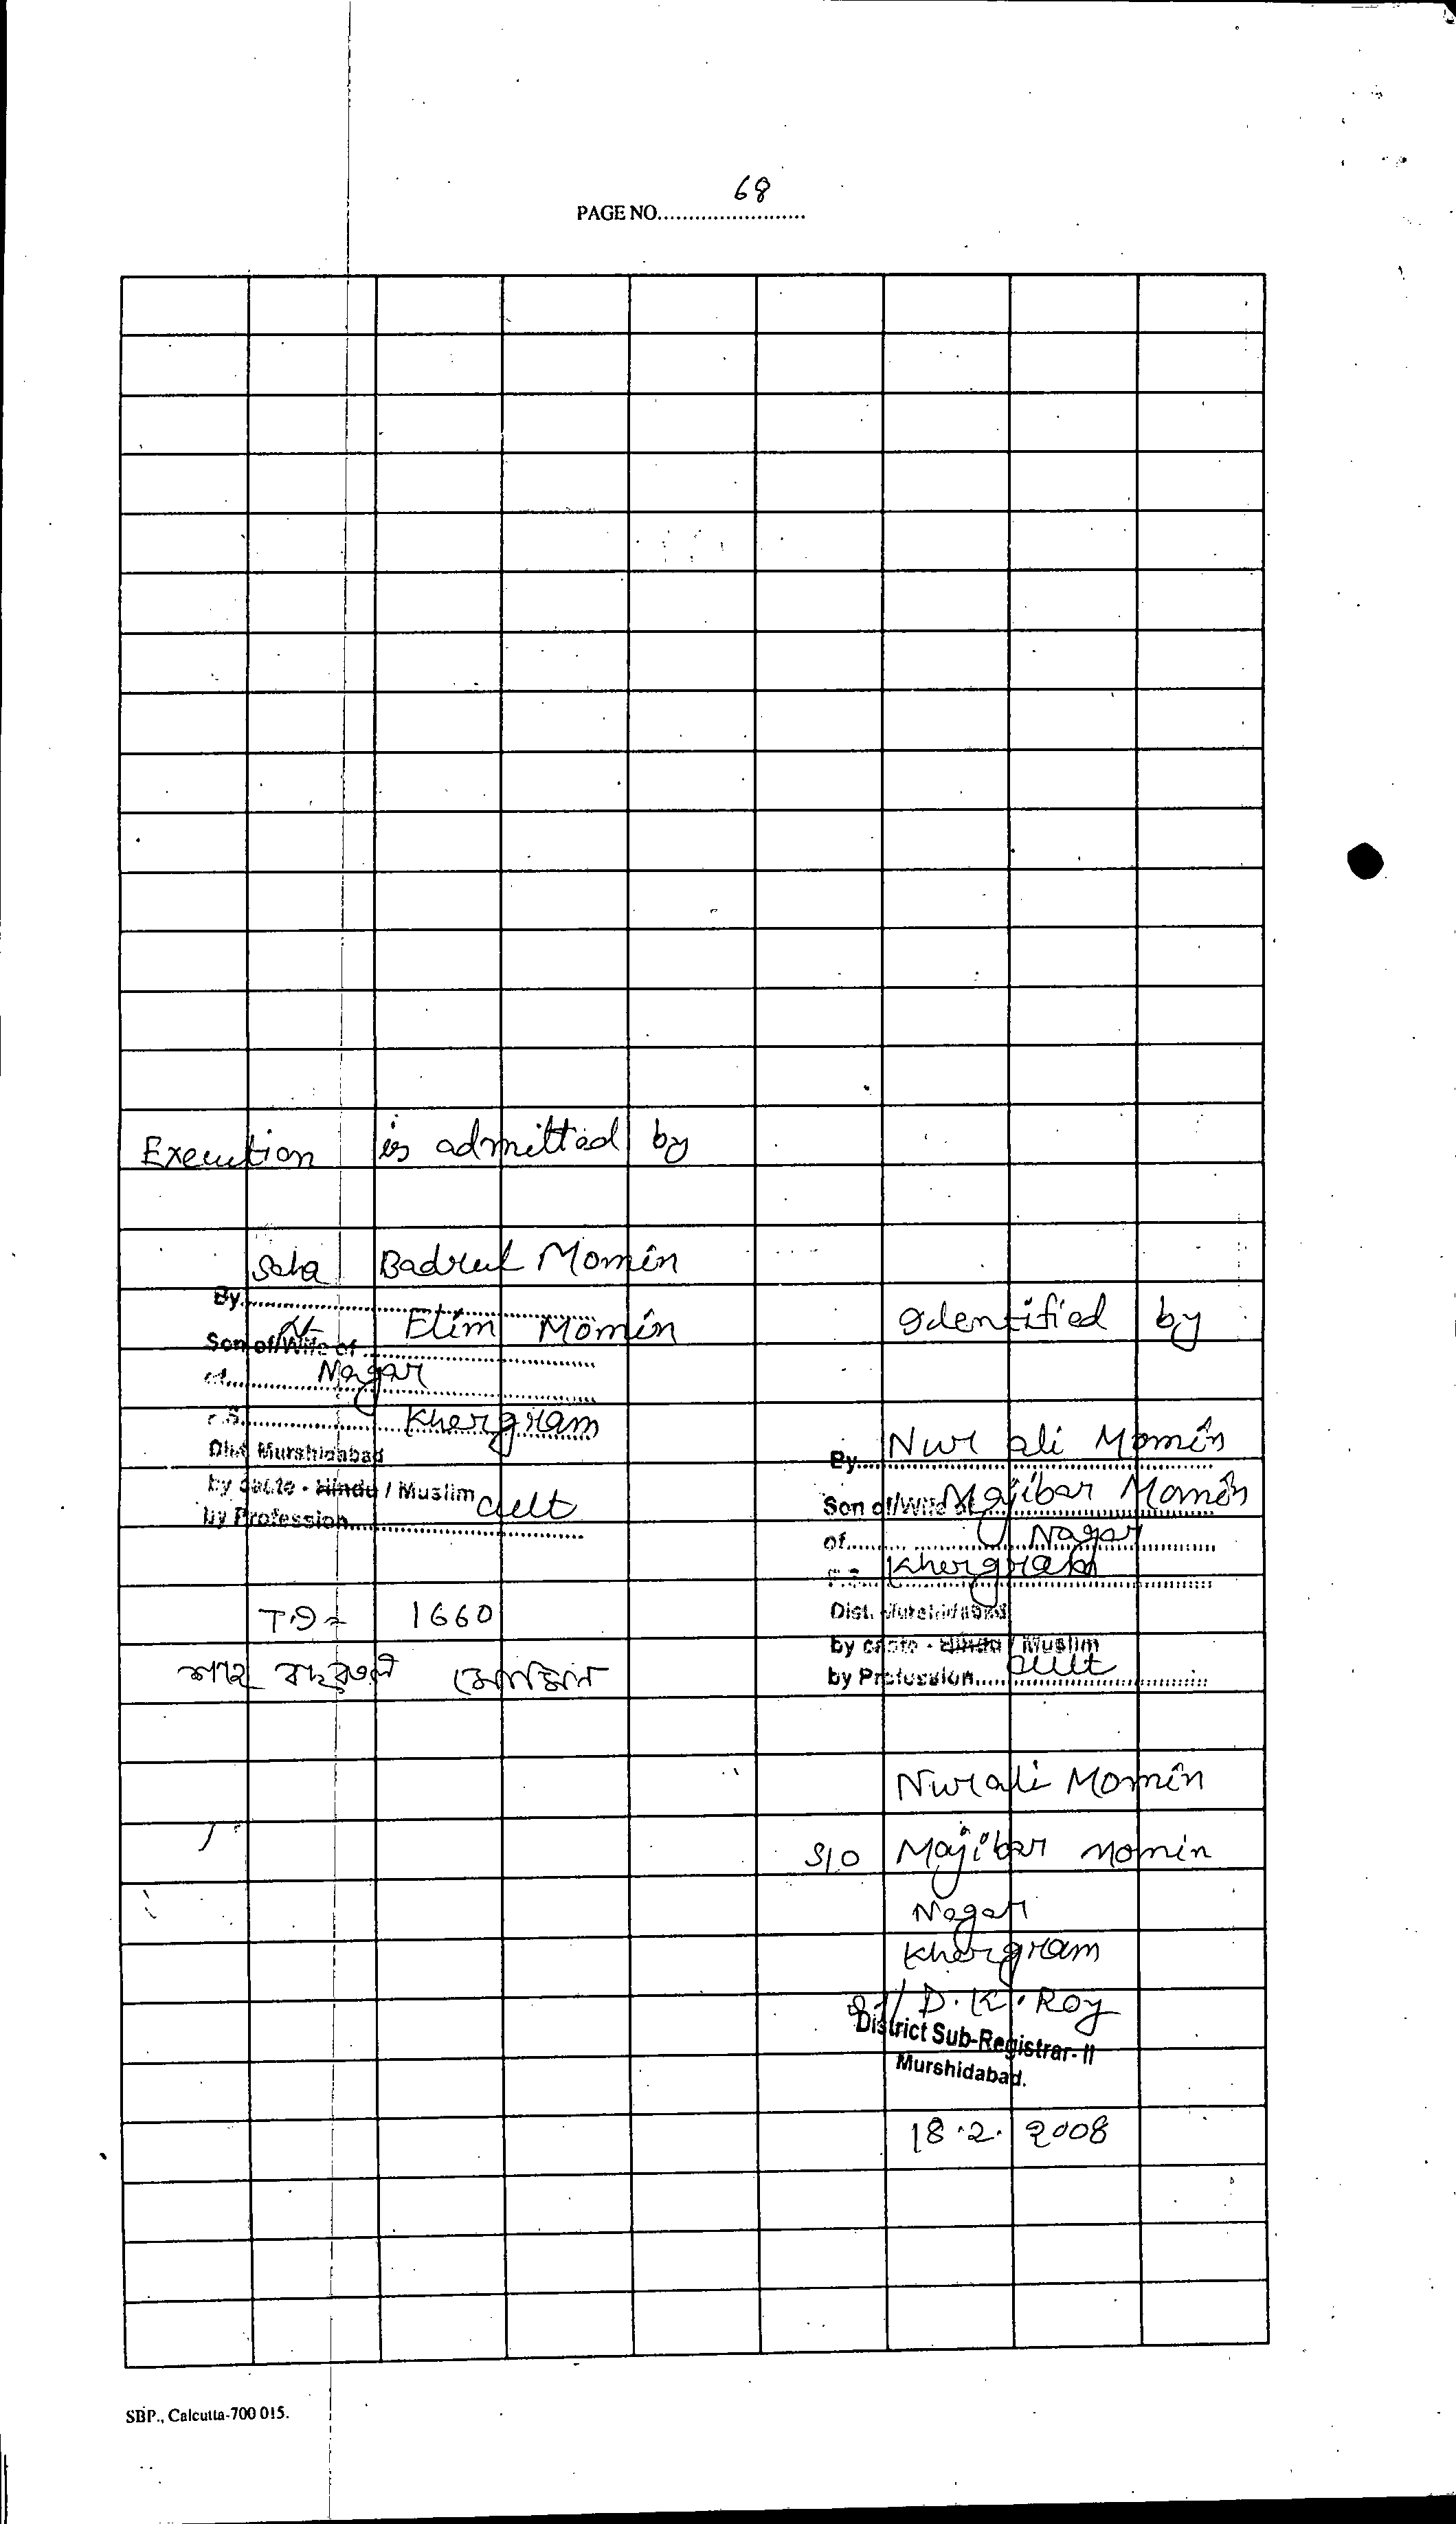 68
PAGE NO.........................
Execution is admitted by
Saha Badrul Momin
By
Son of/Wife of Lt Etim Momin
of Nagar
P.S. Khergram
Dist Murshidabad
by caste - Hindu / Muslim
by Profession cult
T.D 1660
শাহ বদরুল মোমিন
Identified by
By Nur ali Momin
Son of/Wife of Majibar Momin
of Nagar
P.S. Khergram
Dist. Murshidabad
by caste - Hindu / Muslim
by Profession cult
Nurali Momin
S/O Majibar Momin
Nagar
Khergram
Sd/ D. K. Roy
District Sub-Registrar-II
Murshidabad.
18.2.2008
SBP., Calcutta-700 015.